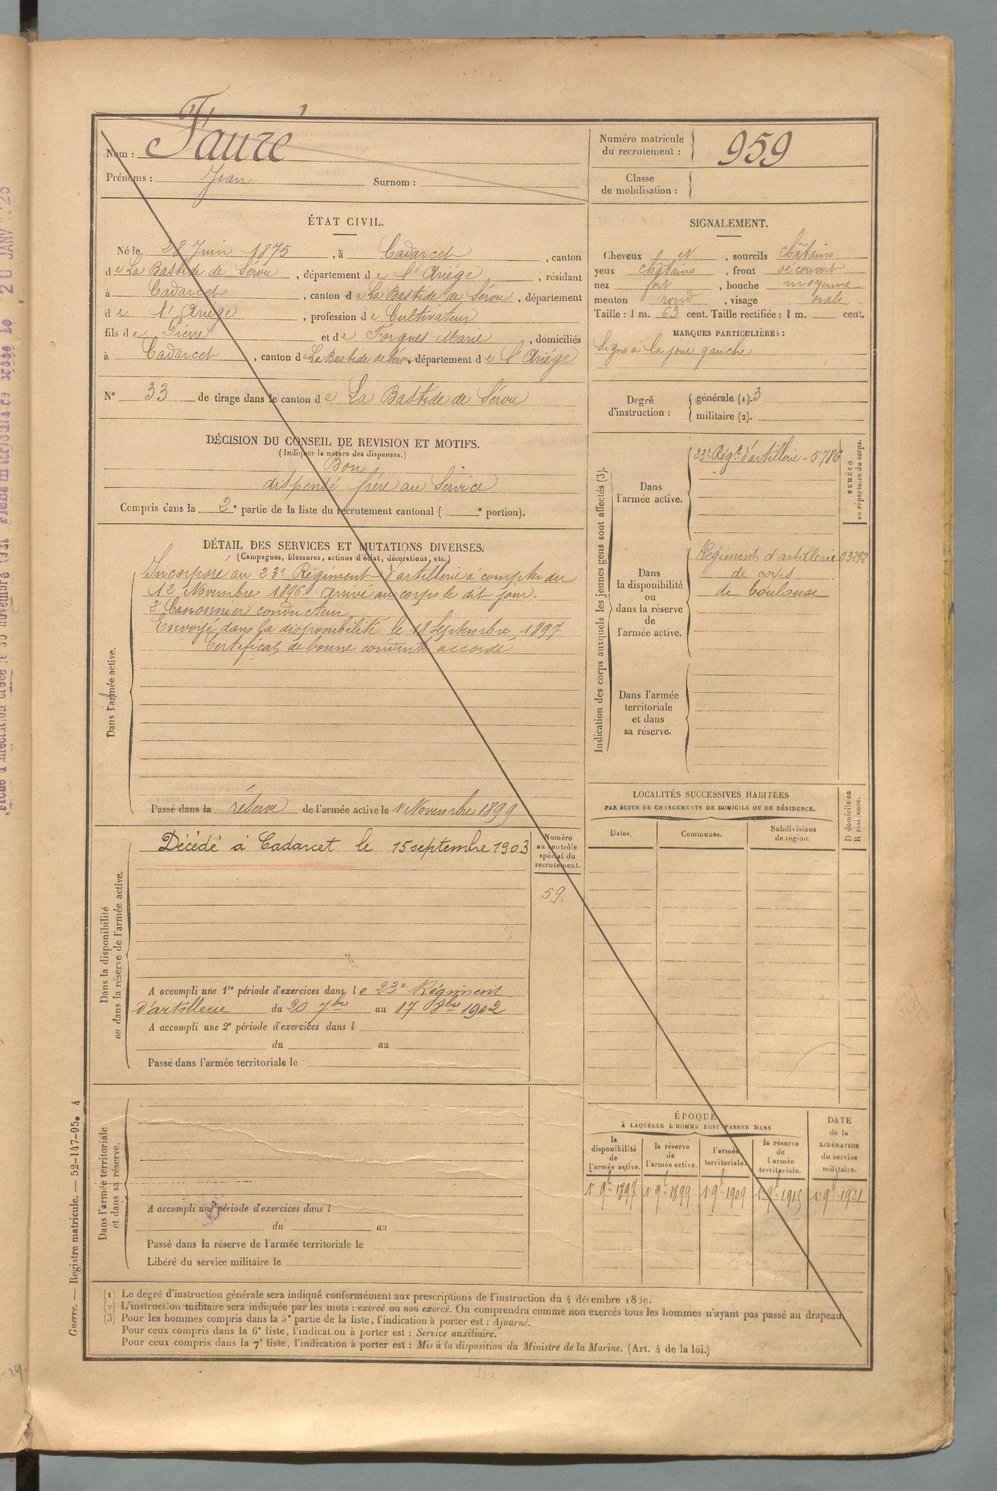 Nom : Fauré
Prénoms : Jean Surnom :
Numéro matricule du recrutement : 959
Classe de mobilisation :
ÉTAT CIVIL.
Né le 28 Juin 1875, à Cadarcet, canton
de La Bastide de Sérou, département de l'Ariége, résidant
à Cadarcet, canton de La Bastide de Sérou, département
de l'Ariége, profession de Cultivateur
fils de Pierre et de Forgues Marie, domiciliés
à Cadarcet, canton de La Bastide de Sérou, département de l'Ariége
N° 33 de tirage dans le canton de La Bastide de Sérou
SIGNALEMENT.
Cheveux et, sourcils châtains
yeux châtains, front découvert
nez fort, bouche moyenne
menton rond, visage ovale
Taille : 1 m. 63 cent. Taille rectifiée : 1 m. cent.
MARQUES PARTICULIÈRES :
Signe à la joue gauche
Degré d'instruction : générale (1). 3
militaire (2).
DÉCISION DU CONSEIL DE REVISION ET MOTIFS.
(Indiquer la nature des dispenses.)
Bon
dispensé frère au Service
Compris dans la 2e partie de la liste du recrutement cantonal ( e portion).
DÉTAIL DES SERVICES ET MUTATIONS DIVERSES.
(Campagnes, blessures, actions d'éclat, décorations, etc.)
Dans l'armée active.
Incorporé au 23e Régiment d'artillerie à compter du
12 Novembre 1896 Arrivé au corps le dit jour.
2e Canonnier conducteur
Envoyé dans la disponibilité le 18 Septembre 1897
Certificat de bonne conduite accordé
Passé dans la réserve de l'armée active le 1 Novembre 1899
Indication des corps auxquels les jeunes gens sont affectés (3).
NUMÉRO au répertoire du corps.
Dans l'armée active.
23e Régt d'artillerie - 5786
Dans la disponibilité ou dans la réserve de l'armée active.
Régiment d'artillerie
de corps
de Toulouse
Dans l'armée territoriale et dans sa réserve.
Dans la disponibilité ou dans la réserve de l'armée active.
Décédé à Cadarcet le 15 septembre 1903
Numéro au contrôle spécial du recrutement.
59.
A accompli une 1re période d'exercices dans le 23e Régiment
d'artillerie du 20 7bre au 17 8bre 1902
A accompli une 2e période d'exercices dans l
du au
Passé dans l'armée territoriale le
LOCALITÉS SUCCESSIVES HABITÉES
PAR SUITE DE CHANGEMENTS DE DOMICILE OU DE RÉSIDENCE.
Dates. Communes. Subdivisions de région.
D domicile ou R résidence.
Dans l'armée territoriale et dans sa réserve.
A accompli une période d'exercices dans l
du au
Passé dans la réserve de l'armée territoriale le
Libéré du service militaire le
ÉPOQUE
À LAQUELLE L'HOMME DOIT PASSER DANS
la disponibilité de l'armée active.
la réserve de l'armée active.
l'armée territoriale.
la réserve de l'armée territoriale.
DATE de la LIBÉRATION du service militaire.
1er 9bre 1897 1er 9bre 1899 1er 9bre 1909 1er 9bre 1915 1er 9bre 1921
(1) Le degré d'instruction générale sera indiqué conformément aux prescriptions de l'instruction du 4 décembre 1830.
(2) L'instruction militaire sera indiquée par les mots : exercé ou non exercé. On comprendra comme non exercés tous les hommes n'ayant pas passé au drapeau.
(3) Pour les hommes compris dans la 5e partie de la liste, l'indication à porter est : Ajourné.
Pour ceux compris dans la 6e liste, l'indication à porter est : Service auxiliaire.
Pour ceux compris dans la 7e liste, l'indication à porter est : Mis à la disposition du Ministre de la Marine. (Art. 4 de la loi.)
Guerre. — Registre matricule. — 52-147-95. 4